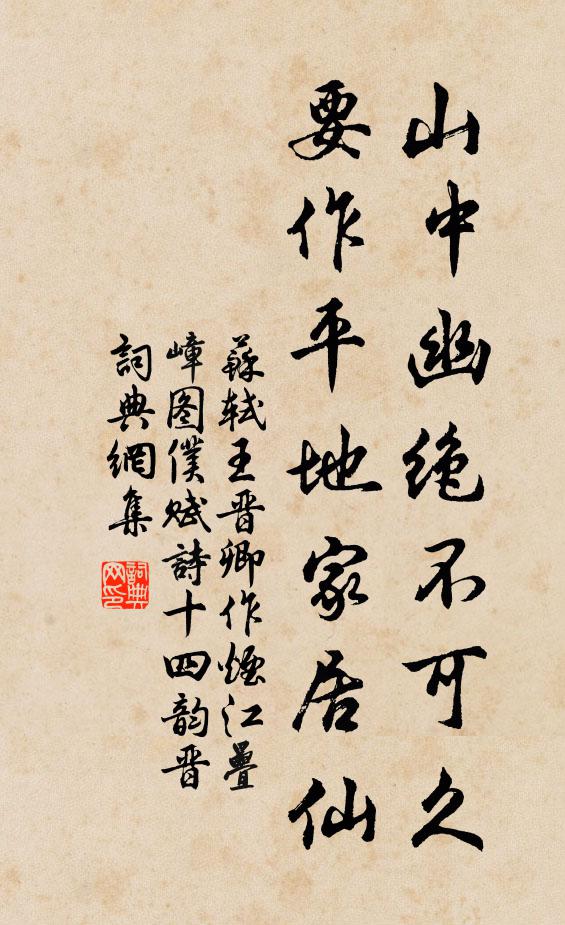 山中幽绝不可久
要作平地家居仙
蘇軾王晋卿作煙江疊
嶂图僕赋詩十四韵晋
詞典網集
詞典
网印